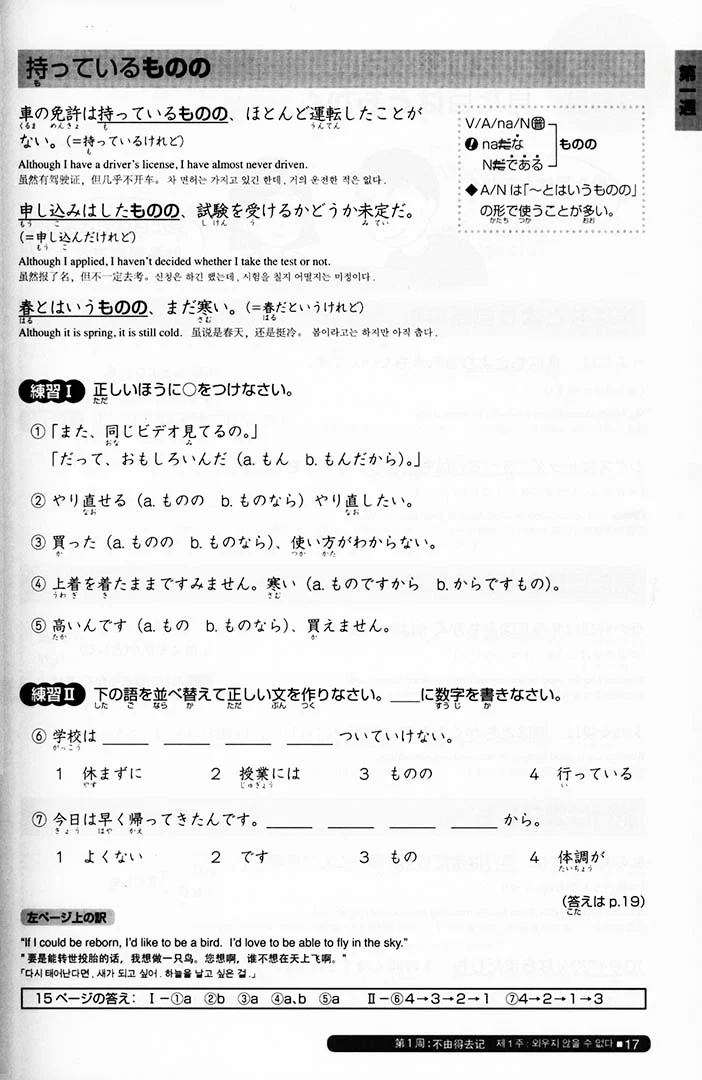 持っているものの
第一週
車の免許は持っているものの、ほとんど運転したことが
ない。(=持っているけれど)
Although I have a driver's license, I have almost never driven.
虽然有驾驶证，但几乎不开车。 차 면허는 가지고 있긴 한데, 거의 운전한 적은 없다.
申し込みはしたものの、試験を受けるかどうか未定だ。
(=申し込んだけれど)
Although I applied, I haven't decided whether I take the test or not.
虽然报了名，但不一定去考。신청은 하긴 했는데, 시험을 칠지 어떨지는 미정이다.
春とはいうものの、まだ寒い。(=春だというけれど)
Although it is spring, it is still cold. 虽说是春天，还是挺冷。 봄이라고는 하지만 아직 춥다.
V/A/na/N普 ものの
! naだな
Nだである
◆A/Nは「〜とはいうものの」
の形で使うことが多い。
練習Ⅰ 正しいほうに○をつけなさい。
①「また、同じビデオ見てるの。」
「だって、おもしろいんだ（a. もん b. もんだから）。」
② やり直せる（a. ものの b. ものなら）やり直したい。
③ 買った（a. ものの b. ものなら）、使い方がわからない。
④ 上着を着たままですみません。寒い（a. ものですから b. からですもの）。
⑤ 高いんです（a. もの b. ものなら）、買えません。
練習Ⅱ 下の語を並べ替えて正しい文を作りなさい。___に数字を書きなさい。
⑥ 学校は ____ ____ ____ ____ ついていけない。
1 休まずに 2 授業には 3 ものの 4 行っている
⑦ 今日は早く帰ってきたんです。____ ____ ____ ____ から。
1 よくない 2 です 3 もの 4 体調が
(答えは p.19)
左ページ上の訳
"If I could be reborn, I'd like to be a bird. I'd love to be able to fly in the sky."
"要是能转世投胎的话，我想做一只鸟。您想啊，谁不想在天上飞啊。"
「다시 태어난다면, 새가 되고 싶어. 하늘을 날고 싶은 걸.」
15ページの答え： Ⅰ－①a ②b ③a ④a、b ⑤a Ⅱ－⑥4→3→2→1 ⑦4→2→1→3
第1周：不由得去记 제1주 : 외우지 않을 수 없다 ■17